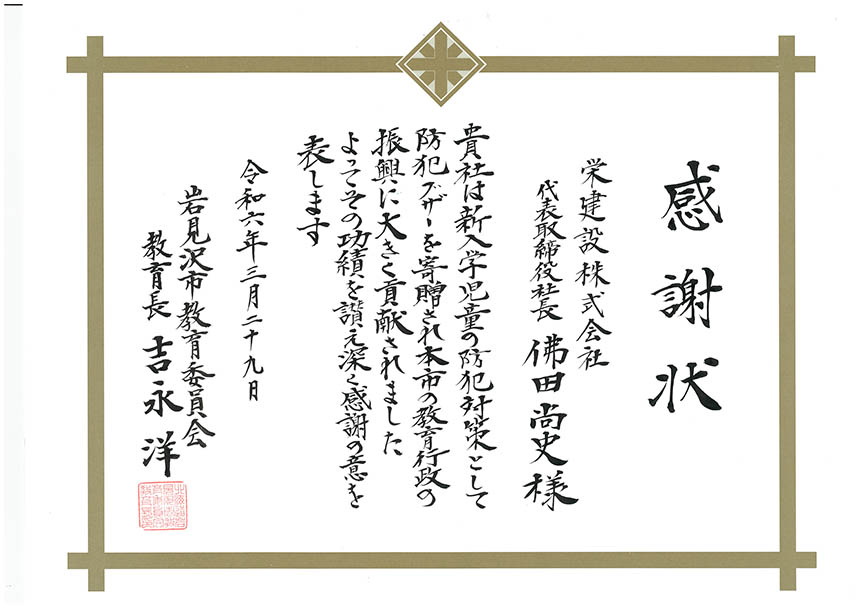 感謝状
栄建設株式会社
代表取締役社長 佛田尚史様
貴社は新入学児童の防犯対策として
防犯ブザーを寄贈され本市の教育行政の
振興に大きく貢献されました
よってその功績を讃え深く感謝の意を
表します
令和六年三月二十九日
岩見沢市教育委員会
教育長 吉永洋